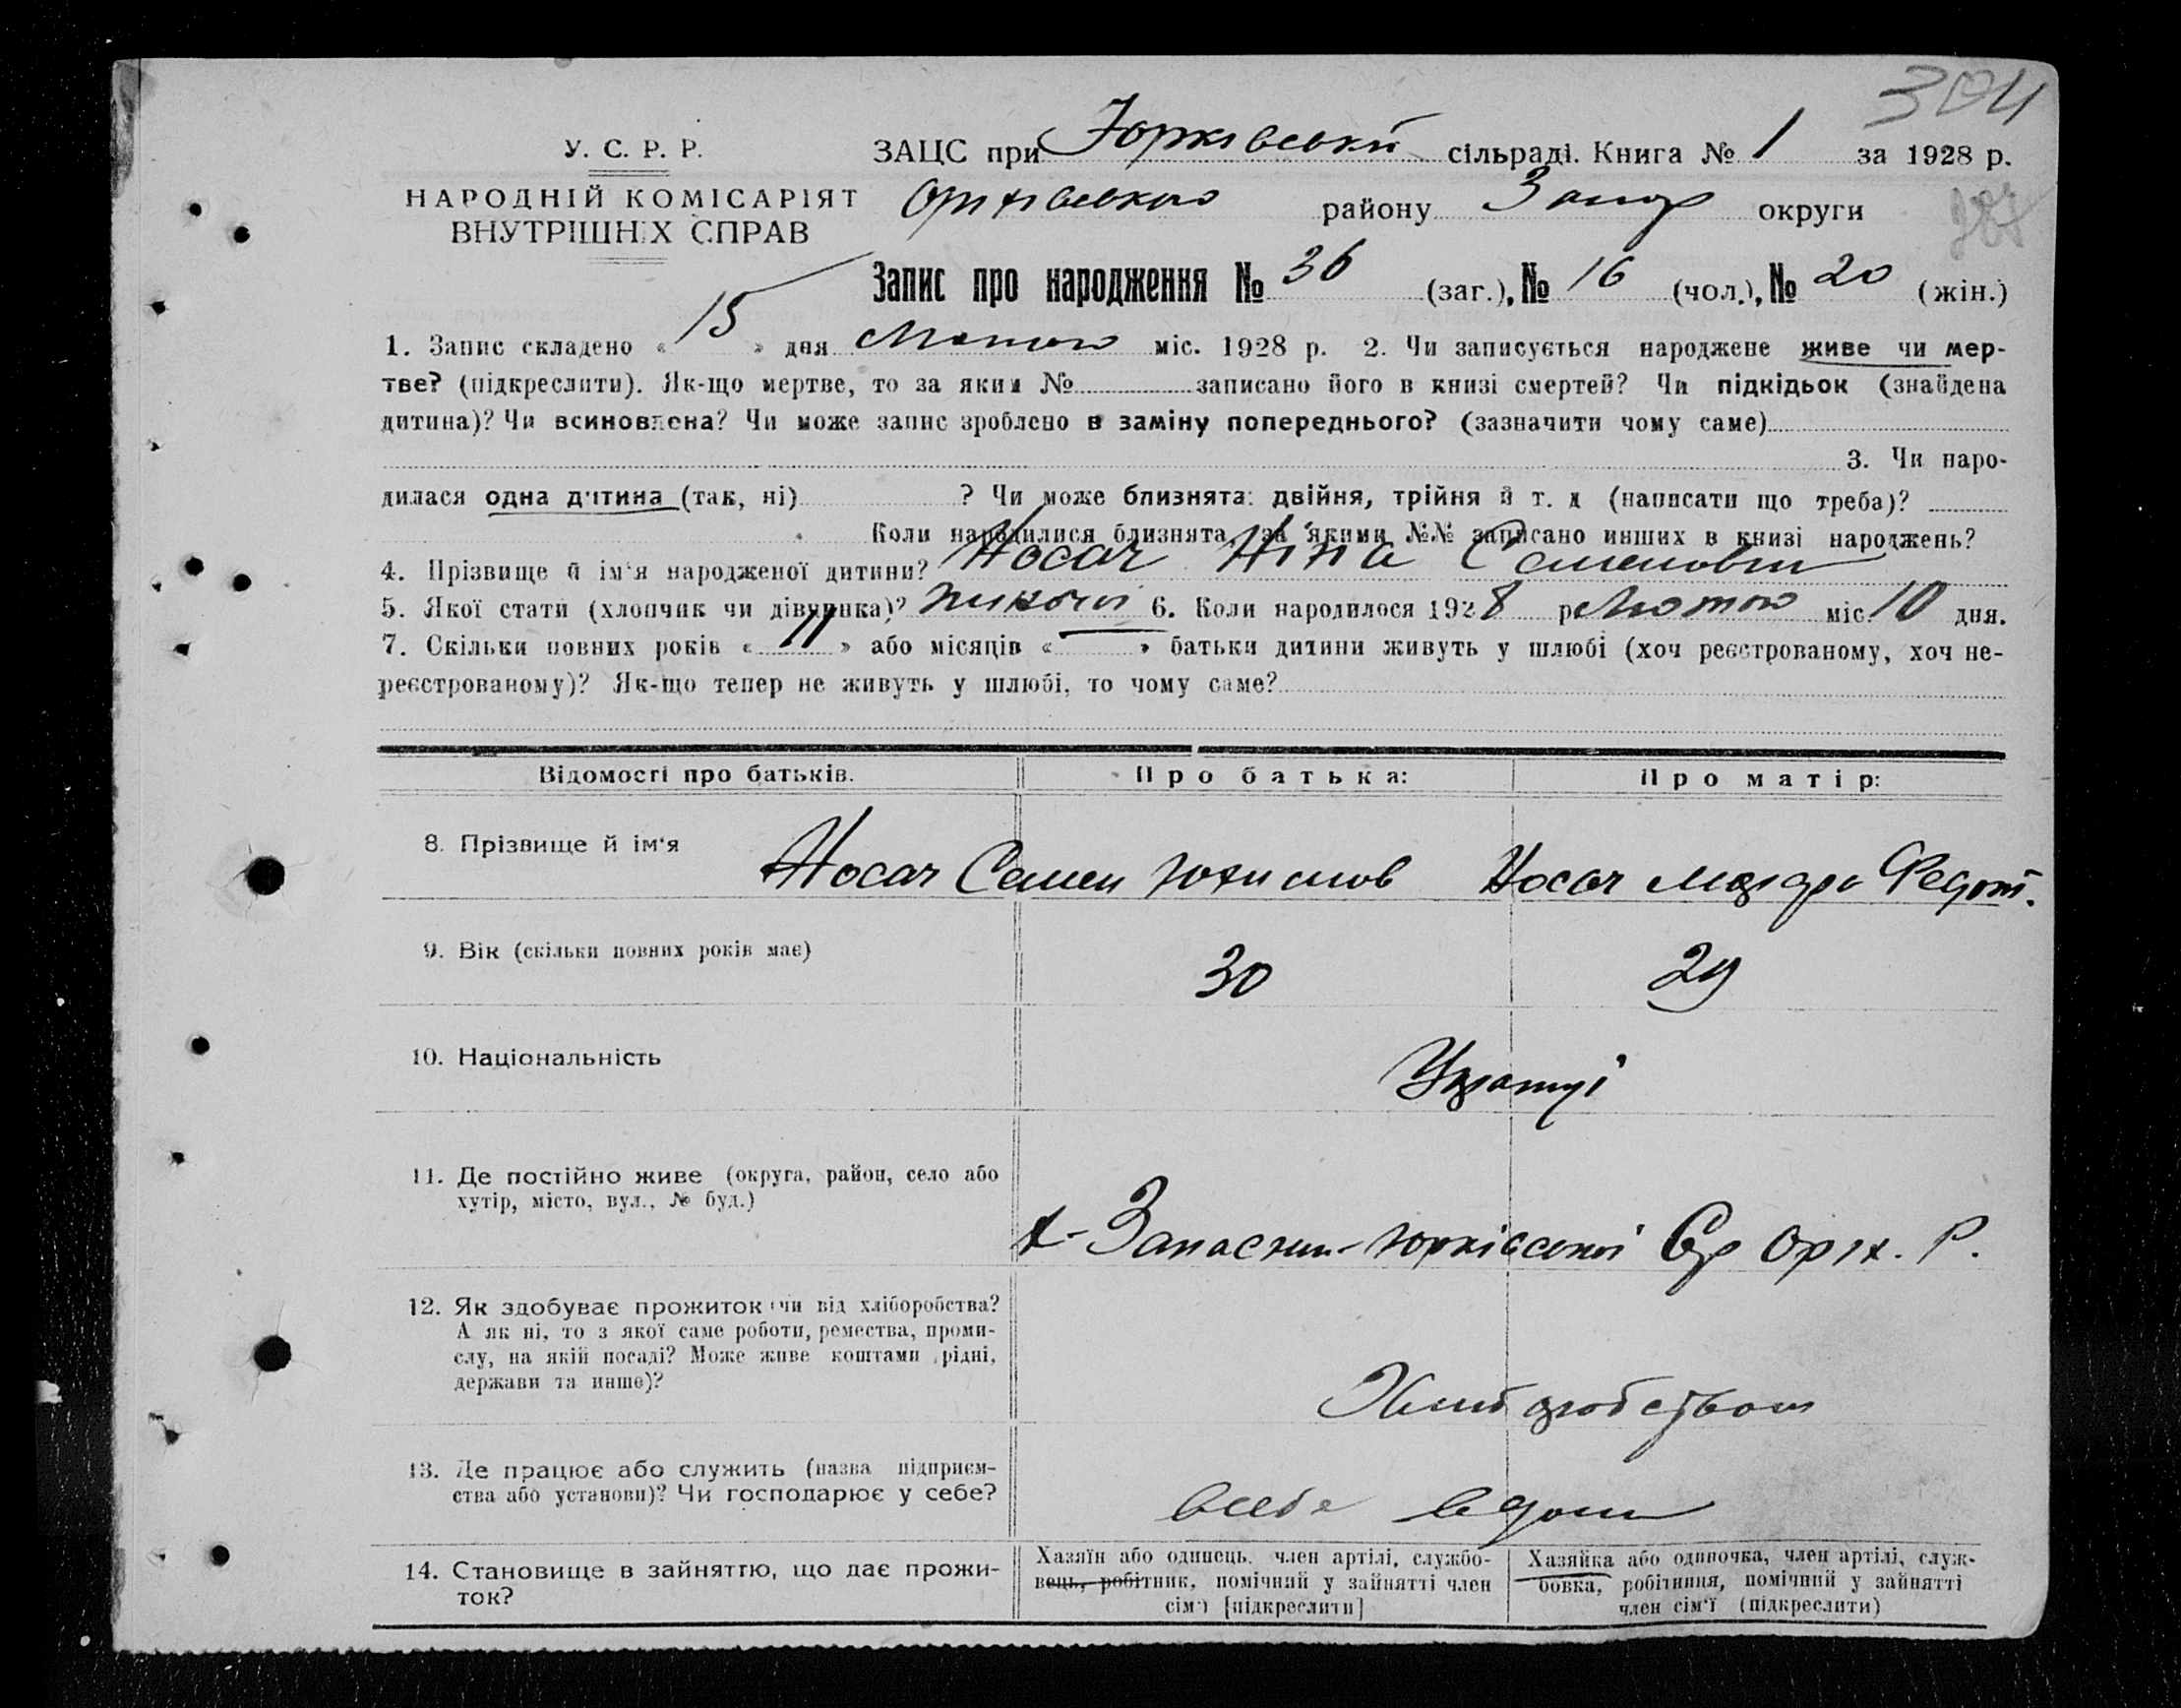 304
У. С. Р. Р.
НАРОДНІЙ КОМІСАРІЯТ
ВНУТРІШНІХ СПРАВ
ЗАЦС при Юрківській сільраді. Книга № 1 за 1928 р.
Оріхівського району Запор округи
Запис про народження № 36 (заг.), № 16 (чол.), № 20 (жін.)
1. Запис складено « 15 » дня Лютого міс. 1928 р. 2. Чи записується народжене живе чи мер-
тве? (підкреслити). Як-що мертве, то за яким № записано його в книзі смертей? Чи підкідьок (знайдена
дитина)? Чи всиновлена? Чи може запис зроблено в заміну попереднього? (зазначити чому саме)
3. Чи наро-
дилася одна дитина (так, ні) ? Чи може близнята: двійня, трійня й т. д (написати що треба)?
Коли народилися близнята, за якими №№ записано инших в книзі народжень?
4. Прізвище й ім'я народженої дитини? Носач Ніна Семеновна
5. Якої стати (хлопчик чи дівчинка)? жіночої 6. Коли народилося 1928 р Лютого міс. 10 дня.
7. Скільки повних років « 11 » або місяців « — » батьки дитини живуть у шлюбі (хоч реєстрованому, хоч не-
реєстрованому)? Як-що тепер не живуть у шлюбі, то чому саме?
Відомості про батьків. Про батька: Про матір:
8. Прізвище й ім'я Носач Семен Юхимов Носач Федот.
9. Вік (скільки повних років має) 30 29
10. Національність
11. Де постійно живе (округа, район, село або
хутір, місто, вул., № буд.)
Юрківської Ср Оріх. Р.
12. Як здобуває прожиток чи від хліборобства?
А як ні, то з якої саме роботи, ремества, проми-
слу, на якій посаді? Може живе коштами рідні,
держави та инше)?
Хліборобством
13. Де працює або служить (назва підприєм-
ства або установи)? Чи господарює у себе?
всебе вдома
14. Становище в зайняттю, що дає прожи-
ток?
Хазяїн або одинець, член артілі, службо-
вець, робітник, помічний у зайнятті член
сім'ї [підкреслити]
Хазяйка або одиночка, член артілі, служ-
бовка, робітниця, помічний у зайнятті
член сім'ї (підкреслити)